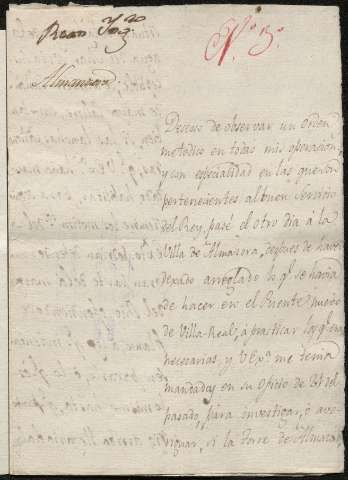 Almanzora
Deseoso de observar un Orden
metodico en todas mis operacion.
y con especialidad en las que son
pertenecientes al buen servicio
del Rey, pasé el otro dia á la
Villa de Almazora, despues de haver
dexado arreglado lo q.e se havia
de hacer en el Puente nuevo
de Villa-Real, á practicar las q.e eran
necesarias, y V Ex.a me tenia
mandadas en su Oficio de 21 del
pasado, para investigar, ó ave-
riguar, si la Torre de Almaza